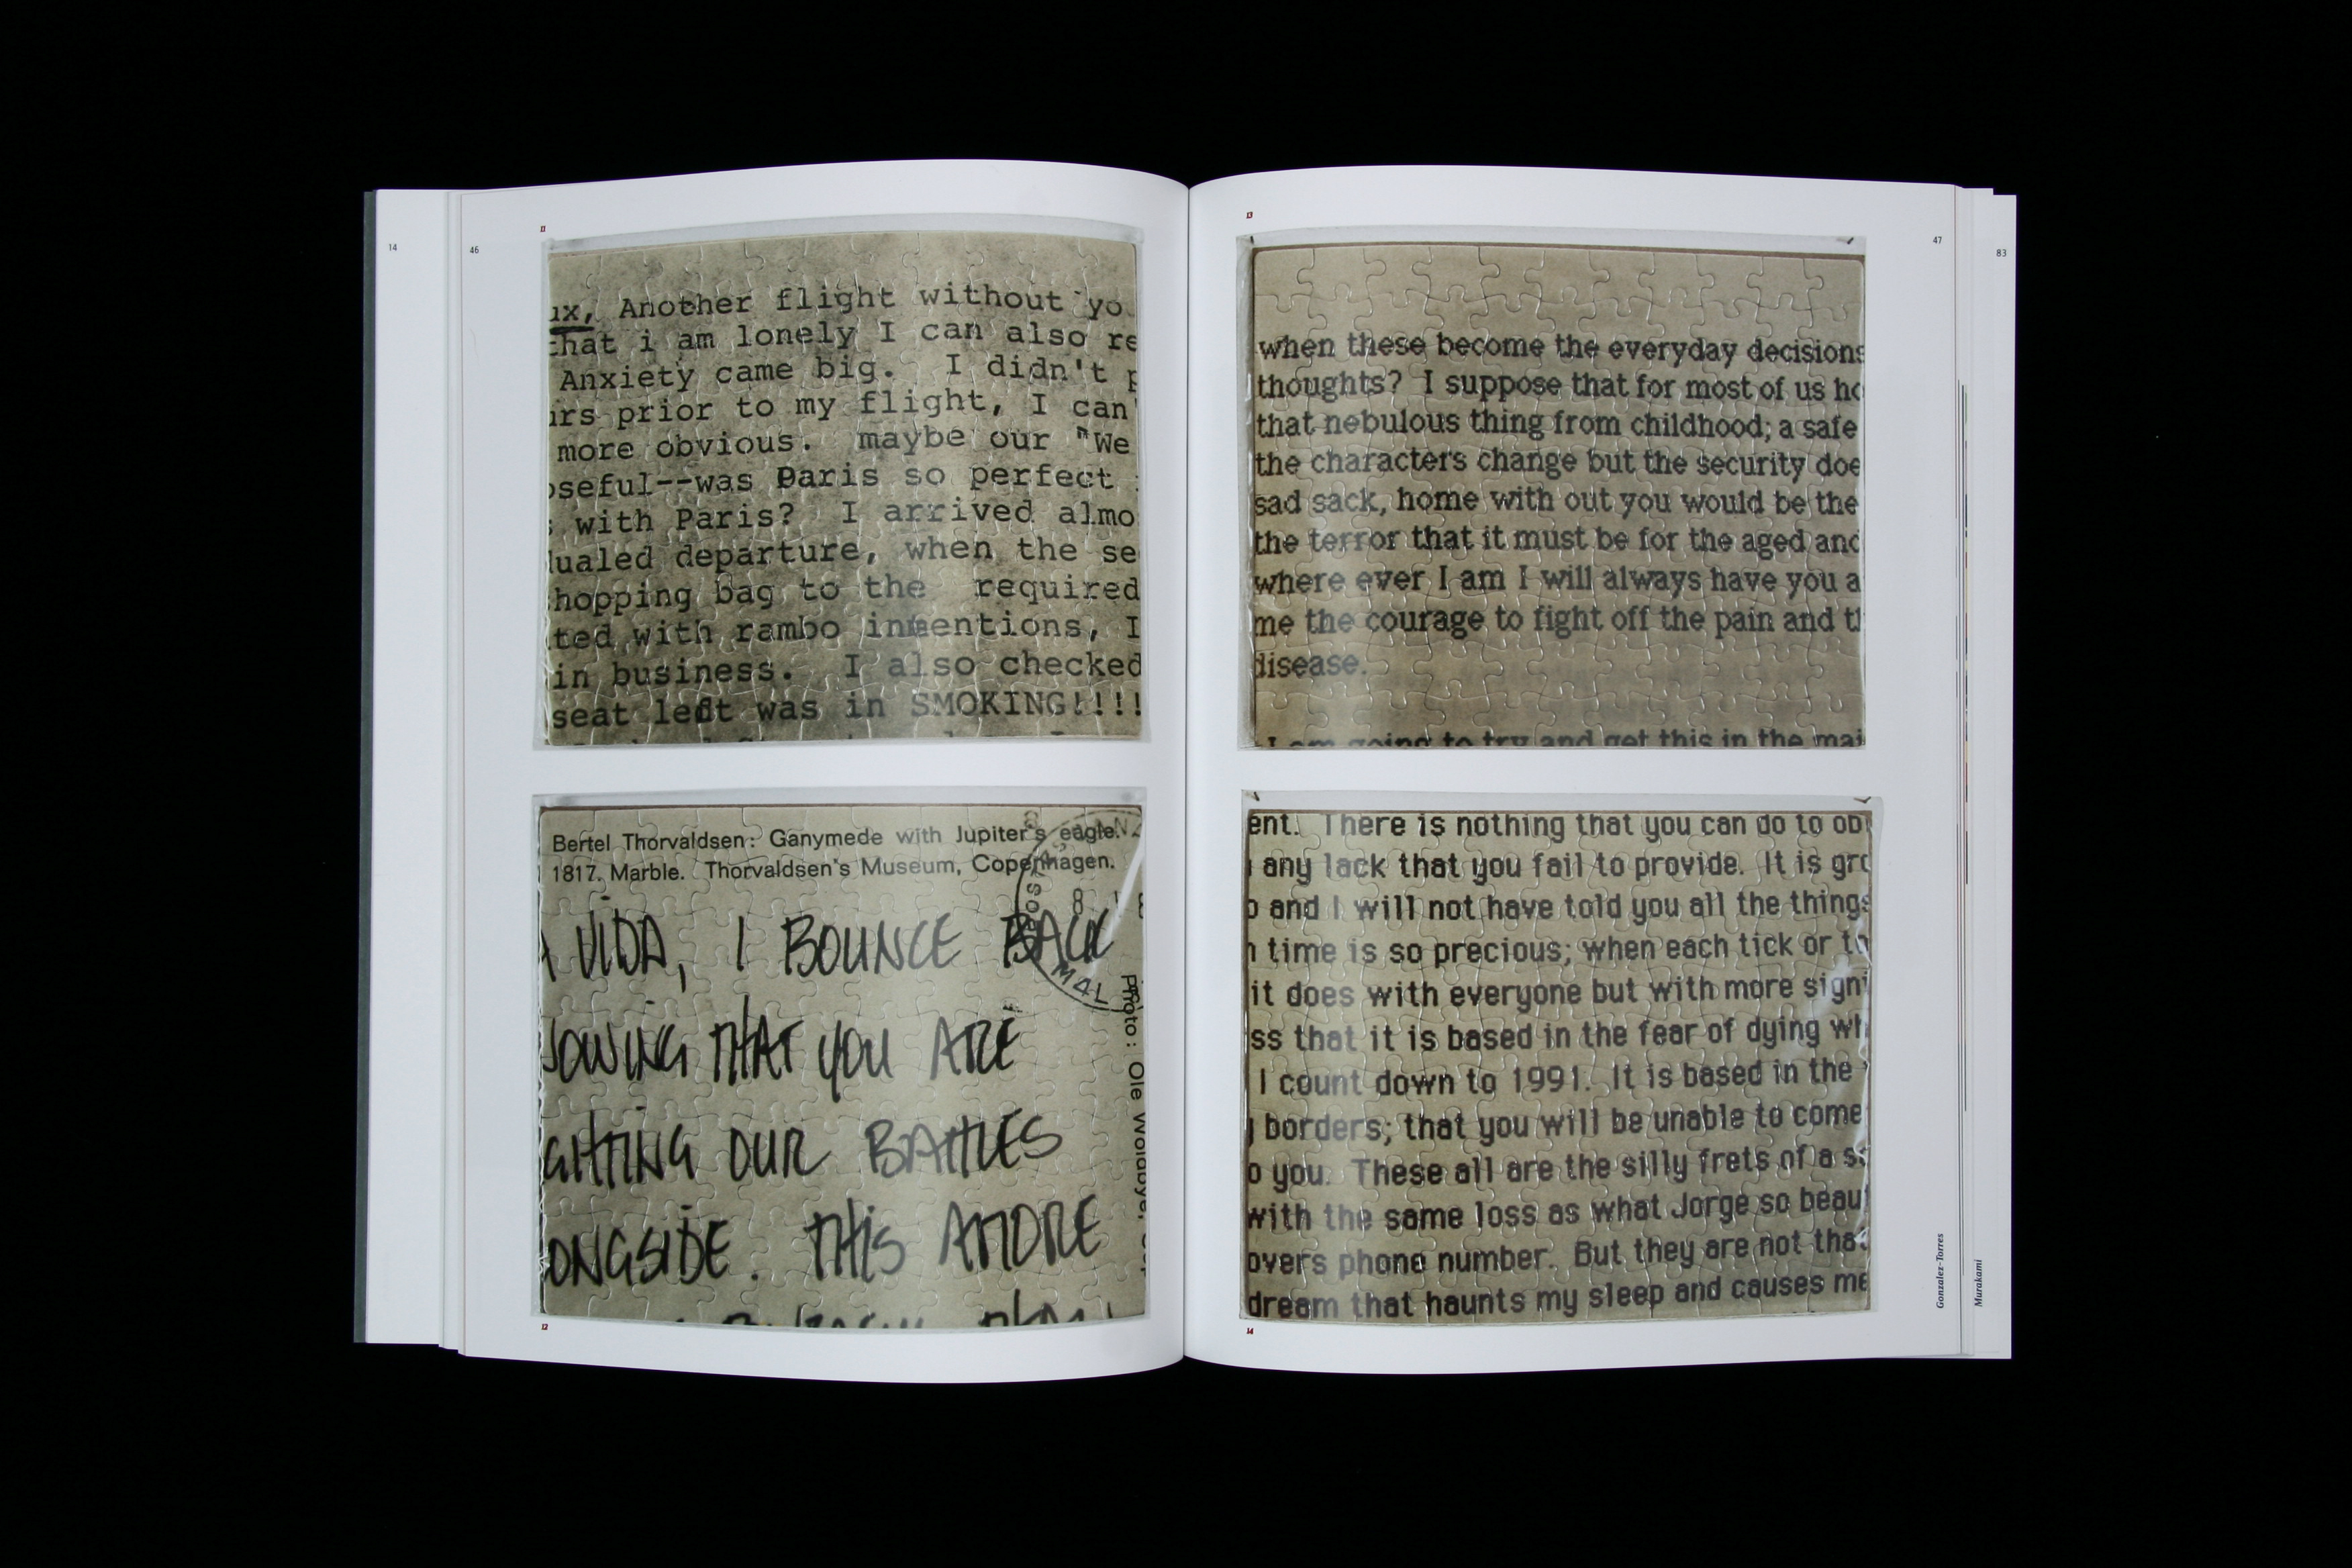 14
46
11
ux, Another flight without yo
that i am lonely I can also re
Anxiety came big. I didn't p
urs prior to my flight, I can'
more obvious. maybe our "We
oseful--was Paris so perfect
s with Paris? I arrived almo
dualed departure, when the se
hopping bag to the required
ted with rambo intentions, I
in business. I also checked
seat left was in SMOKING!!!!
Bertel Thorvaldsen: Ganymede with Jupiter's eagle.
1817. Marble. Thorvaldsen's Museum, Copenhagen.
A VIDA, I BOUNCE BACK
OWING THAT YOU ARE
GHTING OUR BATTLES
ONGSIDE. THIS AMORE
Photo: Ole Woldbye,
8
M4L
12
13
47
83
when these become the everyday decisions
thoughts? I suppose that for most of us ho
that nebulous thing from childhood; a safe
the characters change but the security doe
sad sack, home with out you would be the
the terror that it must be for the aged and
where ever I am I will always have you a
me the courage to fight off the pain and th
disease.
I am going to try and get this in the mai
ent. There is nothing that you can do to ob
any lack that you fail to provide. It is gro
o and I will not have told you all the things
n time is so precious; when each tick or to
it does with everyone but with more signi
ss that it is based in the fear of dying wh
I count down to 1991. It is based in the
y borders; that you will be unable to come
o you. These all are the silly frets of a s
with the same loss as what Jorge so beau
overs phone number. But they are not tha
dream that haunts my sleep and causes me
14
Gonzalez-Torres
Murakami